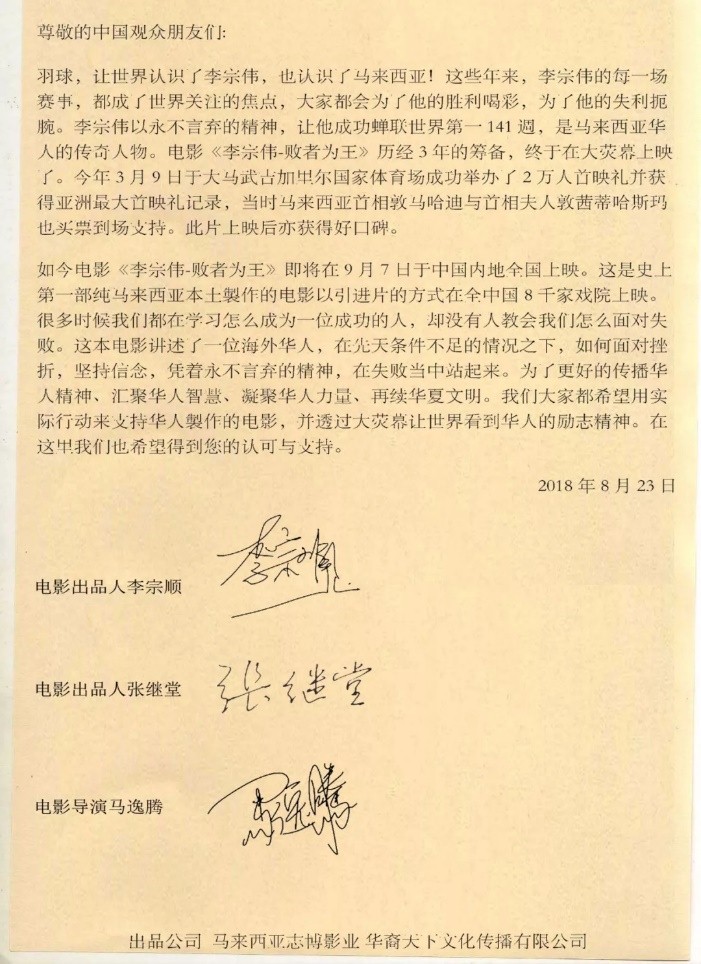 尊敬的中国观众朋友们:
羽球，让世界认识了李宗伟，也认识了马来西亚！这些年来，李宗伟的每一场
赛事，都成了世界关注的焦点，大家都会为了他的胜利喝彩，为了他的失利扼
腕。李宗伟以永不言弃的精神，让他成功蝉联世界第一 141 週，是马来西亚华
人的传奇人物。电影《李宗伟-败者为王》历经 3 年的筹备，终于在大荧幕上映
了。今年 3 月 9 日于大马武吉加里尔国家体育场成功举办了 2 万人首映礼并获
得亚洲最大首映礼记录，当时马来西亚首相敦马哈迪与首相夫人敦茜蒂哈斯玛
也买票到场支持。此片上映后亦获得好口碑。
如今电影《李宗伟-败者为王》即将在 9 月 7 日于中国内地全国上映。这是史上
第一部纯马来西亚本土製作的电影以引进片的方式在全中国 8 千家戏院上映。
很多时候我们都在学习怎么成为一位成功的人，却没有人教会我们怎么面对失
败。这本电影讲述了一位海外华人，在先天条件不足的情况之下，如何面对挫
折，坚持信念，凭着永不言弃的精神，在失败当中站起来。为了更好的传播华
人精神、汇聚华人智慧、凝聚华人力量、再续华夏文明。我们大家都希望用实
际行动来支持华人製作的电影，并透过大荧幕让世界看到华人的励志精神。在
这里我们也希望得到您的认可与支持。
2018 年 8 月 23 日
电影出品人李宗顺
电影出品人张继堂 张继堂
电影导演马逸腾 马逸腾
出品公司 马来西亚志博影业 华裔天下文化传播有限公司